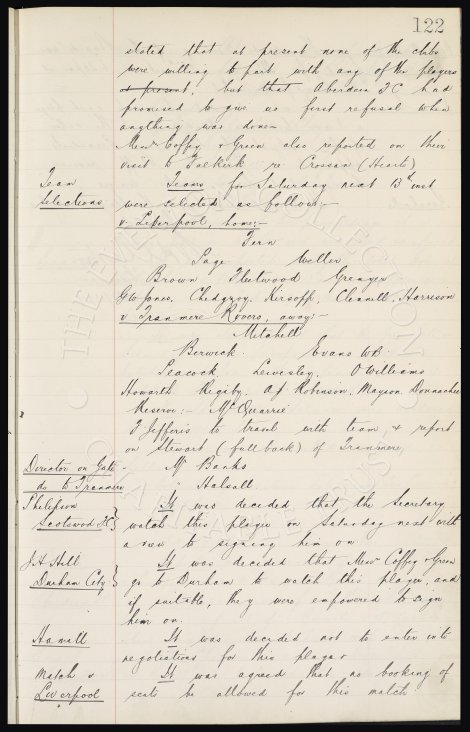 122
stated that at present none of the clubs
were willing to part with any of their players
at present, but that Aberdeen FC had
promised to give us first refusal when
anything was done-
Messrs Coffey & Green also reported on their
visit to Falkirk re Crossan (Hearts)
Team Selections
Teams for Saturday next 13th inst
were selected as follows:-
v. Liverpool, home:-
Fern
Page Weller
Brown Fleetwood Grenyer
GW Jones, Chedgzoy, Kirsopp, Clennell, Harrison
v Tranmere Rovers, away:-
Mitchell
Berwick. Evans W.B.
Peacock, Lewesley. O Williams
Howarth Rigsby. AJ Robinson, Mayson Donnachie
Reserve:- McQuarrie
T Jefferis to travel with team & report
on Stewart (full back) of Tranmere
Director on Gate - Mr Banks
do to Tranmere " Halsall
Philipson
Scotswood FC
It was decided that the Secretary
watch this player on Saturday next with
a view to signing him on.
J.H Hill
Durham City
It was decided that Messrs Coffey & Green
go to Durham to watch this player, and
if suitable, they were empowered to sign
him on.
Hamill
It was decided not to enter into
negotiations for this player
Match v
Liverpool
It was agreed that no booking of
seats be allowed for this match
THE EVERTON COLLECTION